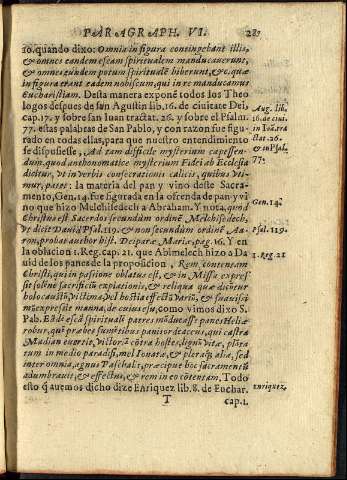 PARAGRAPH. VI. 287
10. quando dixo: Omnia in figura contingebant illis,
& omnes eandem escam spiritualem manducaverunt,
& omnes eundem potum spiritualē biberunt, & c. quæ
in figura erant eadem nobiscum, qui in re manducamus
Eucharistiam. Desta manera exponē todos los Theo
logos despues de san Agustin lib. 16. de ciuitate Dei,
cap. 17. y sobre san Iuan tractat. 26. y sobre el Psalm.
77. estas palabras de San Pablo, y con razon fue figu-
rado en todas ellas, para que nuestro entendimiento
se dispusiesse, Ad tam difficile mysterium capessen-
dum, quod anthonomaticè mysterium Fidei ab Ecclesia
dicitur, vt in verbis consecrationis calicis, quibus vti-
mur, patet: la materia del pan y vino deste Sacra-
mento, Gen. 14. fue figurada en la ofrenda de pan y vi
no que hizo Melchisedech a Abraham. Y nota, quod
Christus est Sacerdos secundùm ordinē Melchisedech,
vt dicit Dauid Psal. 119. & non secundùm ordinē Aa-
ron, probat author hist. Deiparæ Mariæ, pag. 16. Y en
la oblacion 1. Reg. cap. 21. que Abimelech hizo a Da
uid de los panes de la proposicion, Rem, contentam
Christi, qui in pasione oblatus est, & in Missa expres
sit solēne sacrificiū expiationis, & reliqua quæ dicūtur
holocaustū, victima, vel hostia effectū variū, & suauissi
mū expressit manna, de cuius esu, como vimos dixo S.
Pab.
robur, qui præbes
Madian euertit, Victor. à cōtra hostes, lignū vitæ, plāta
tum in medio paradisi, mel Ionatæ, & pleraq; alia, sed
inter omnia, agnus Paschalis, præcipue hoc sacramentū
adumbrauit, & effectus, & rem in eo cōtentam. Todo
esto q̄ auemos dicho dize Enriquez lib. 8. de Euchar.
T cap. 1.
Aug. lib.
16. de ciui.
in Ioā. tra
ctat. 26.
& in Psal.
77.
Gen. 14.
Psal. 119.
1. Reg. 21
Enriquez.